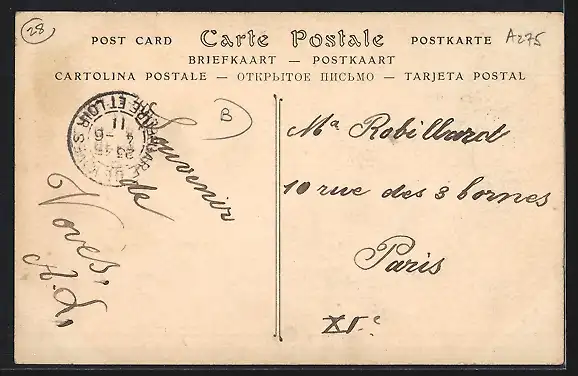 28
POST CARD Carte Postale POSTKARTE
A275
BRIEFKAART — POSTKAART
CARTOLINA POSTALE — ОТКРЫТОЕ ПИСЬМО — TARJETA POSTAL
B
Souvenir
de
Voves,
A. L.
EURE ET LOIR
11
Ma Robillard
10 rue des 3 bornes
Paris
XI.e